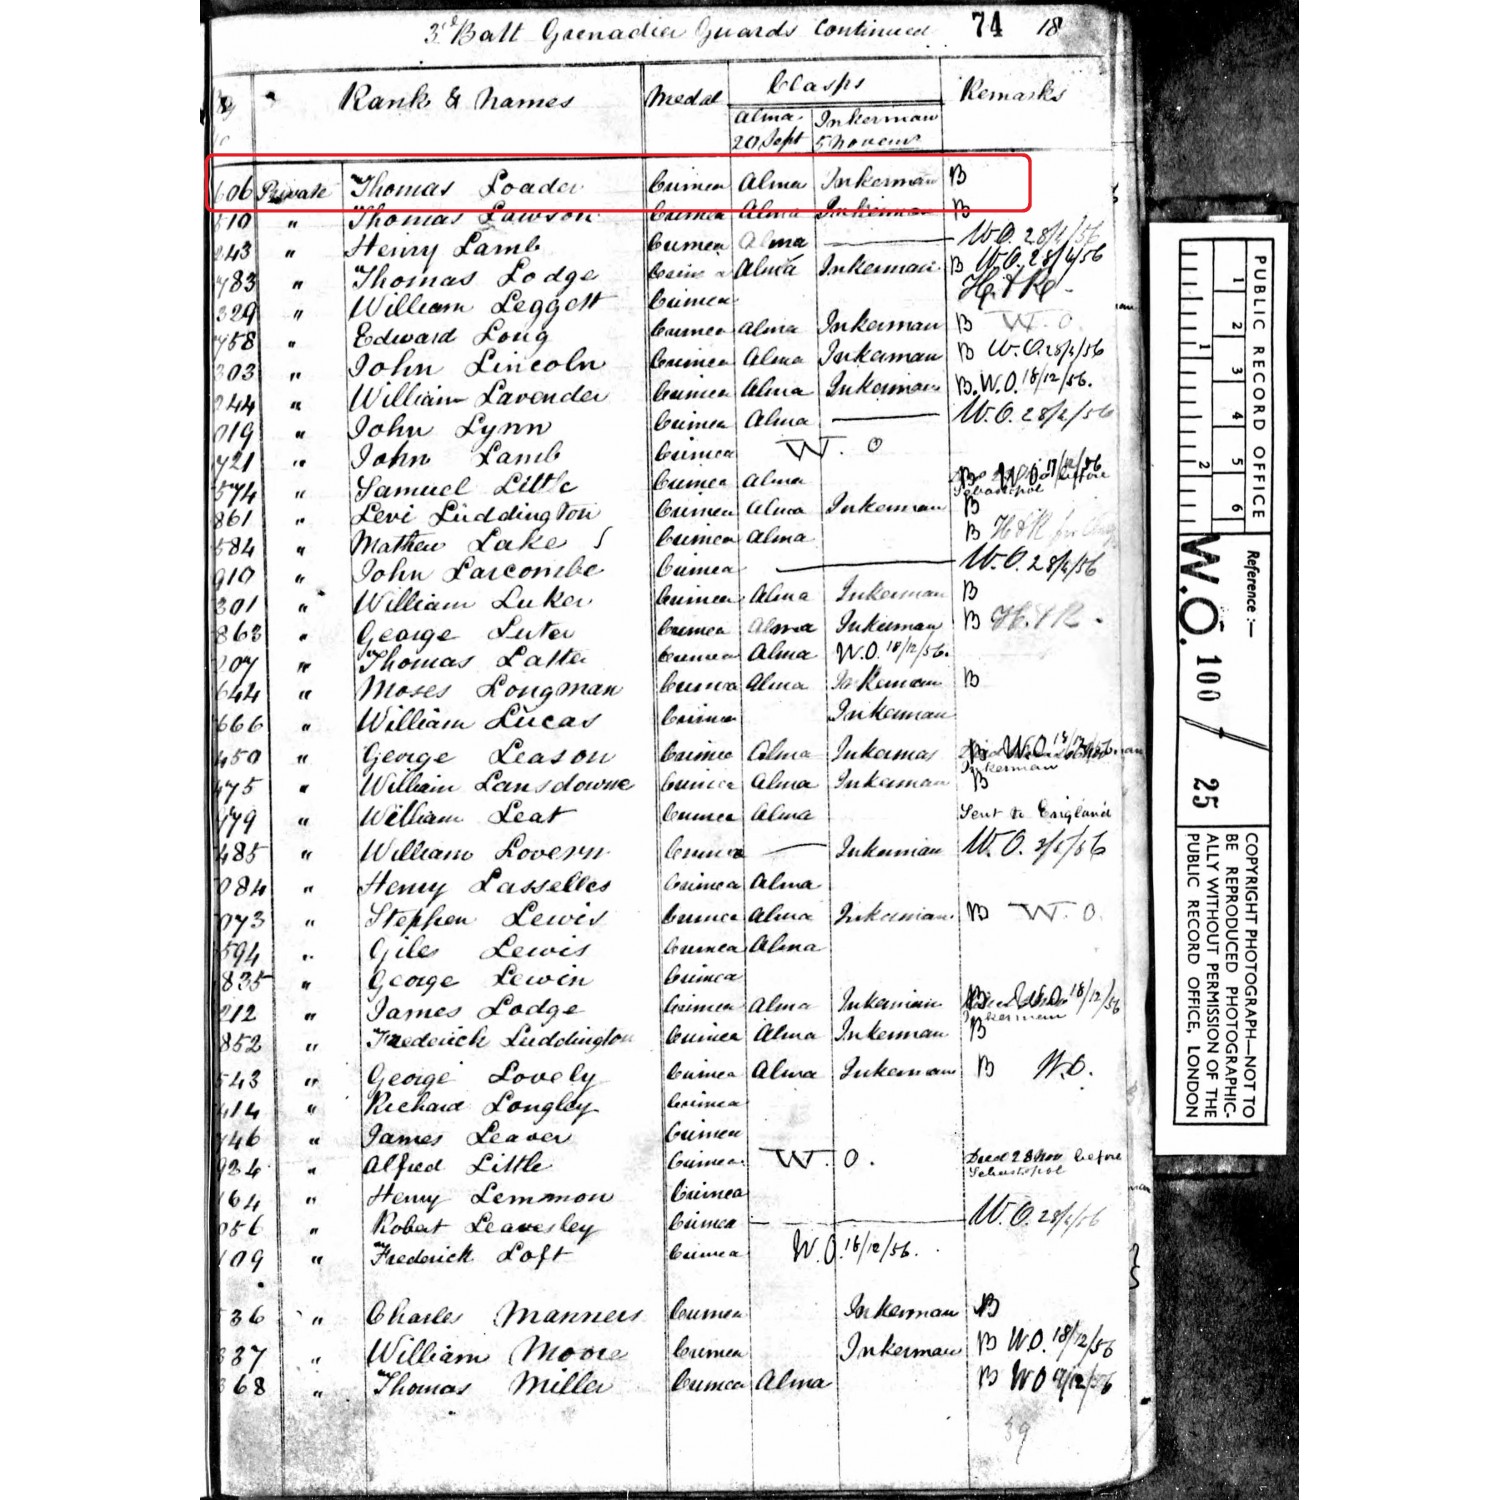 3rd Batt Grenadier Guards Continued 74 18
Rank & Names Medal Clasps Remarks
Alma Inkerman
20 Sept 5 Novem
606 Private Thomas Loader Crimea Alma Inkerman B
810 " Thomas Lawson Crimea Alma Inkerman B
243 " Henry Lamb Crimea Alma W.O. 28/4/56
783 " Thomas Lodge Crimea Alma Inkerman B W.O. 28/4/56
329 " William Leggett Crimea H & R
758 " Edward Long Crimea Alma Inkerman B W.O.
303 " John Lincoln Crimea Alma Inkerman B W.O. 28/4/56
244 " William Lavender Crimea Alma Inkerman B. W.O. 18/12/56.
019 " John Lynn Crimea Alma W.O. 28/4/56
721 " John Lamb Crimea W. O
574 " Samuel Little Crimea Alma B W.O. 17/12/56 Sebastopol
861 " Levi Luddington Crimea Alma Inkerman B
584 " Mathew Lake Crimea Alma B H & R for
910 " John Larcombe Crimea W.O. 28/4/56
301 " William Luker Crimea Alma Inkerman B
863 " George Luter Crimea Alma Inkerman B H & R
107 " Thomas Latter Crimea Alma W.O. 18/12/56.
644 " Moses Longman Crimea Alma Inkerman B
666 " William Lucas Crimea Inkerman
450 " George Leason Crimea Alma Inkerman B W.O. Inkerman
475 " William Lansdowne Crimea Alma Inkerman B
779 " William Leat Crimea Alma Sent to England
485 " William Lovern Crimea Inkerman W.O. 3/5/56
084 " Henry Lasselles Crimea Alma
073 " Stephen Lewis Crimea Alma Inkerman B W.O.
594 " Giles Lewis Crimea Alma
835 " George Lewin Crimea
212 " James Lodge Crimea Alma Inkerman B W.O. 18/12/56 Inkerman
852 " Frederick Luddington Crimea Alma Inkerman B
543 " George Lovely Crimea Alma Inkerman B W.O.
414 " Richard Longley Crimea
746 " James Leaver Crimea
924 " Alfred Little Crimea W. O. Died 28 Nov before Sebastopol
164 " Henry Lemmon Crimea
056 " Robert Leavesley Crimea W.O. 28/4/56
109 " Frederick Loft Crimea W.O. 18/12/56.
536 " Charles Manners Crimea Inkerman B
337 " William Moore Crimea Inkerman B W.O. 18/12/56
368 " Thomas Miller Crimea Alma B WO 18/12/56
39
PUBLIC RECORD OFFICE
1 2 3 4 5 6
1 2
Reference:—
W.O. 100 / 25
COPYRIGHT PHOTOGRAPH—NOT TO
BE REPRODUCED PHOTOGRAPHIC-
ALLY WITHOUT PERMISSION OF THE
PUBLIC RECORD OFFICE, LONDON